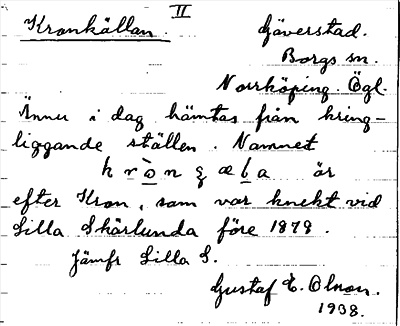 II
Kronkällan. Gäverstad.
Borgs sn.
Norrköping. Ögl.
Ännu i dag hämtas från kring-
liggande ställen. Namnet
krònçæļa är
efter Kron, som var knekt vid
Lilla Skärlunda före 1879.
Jämfr Lilla S.
Gustaf E. Olson.
1938.